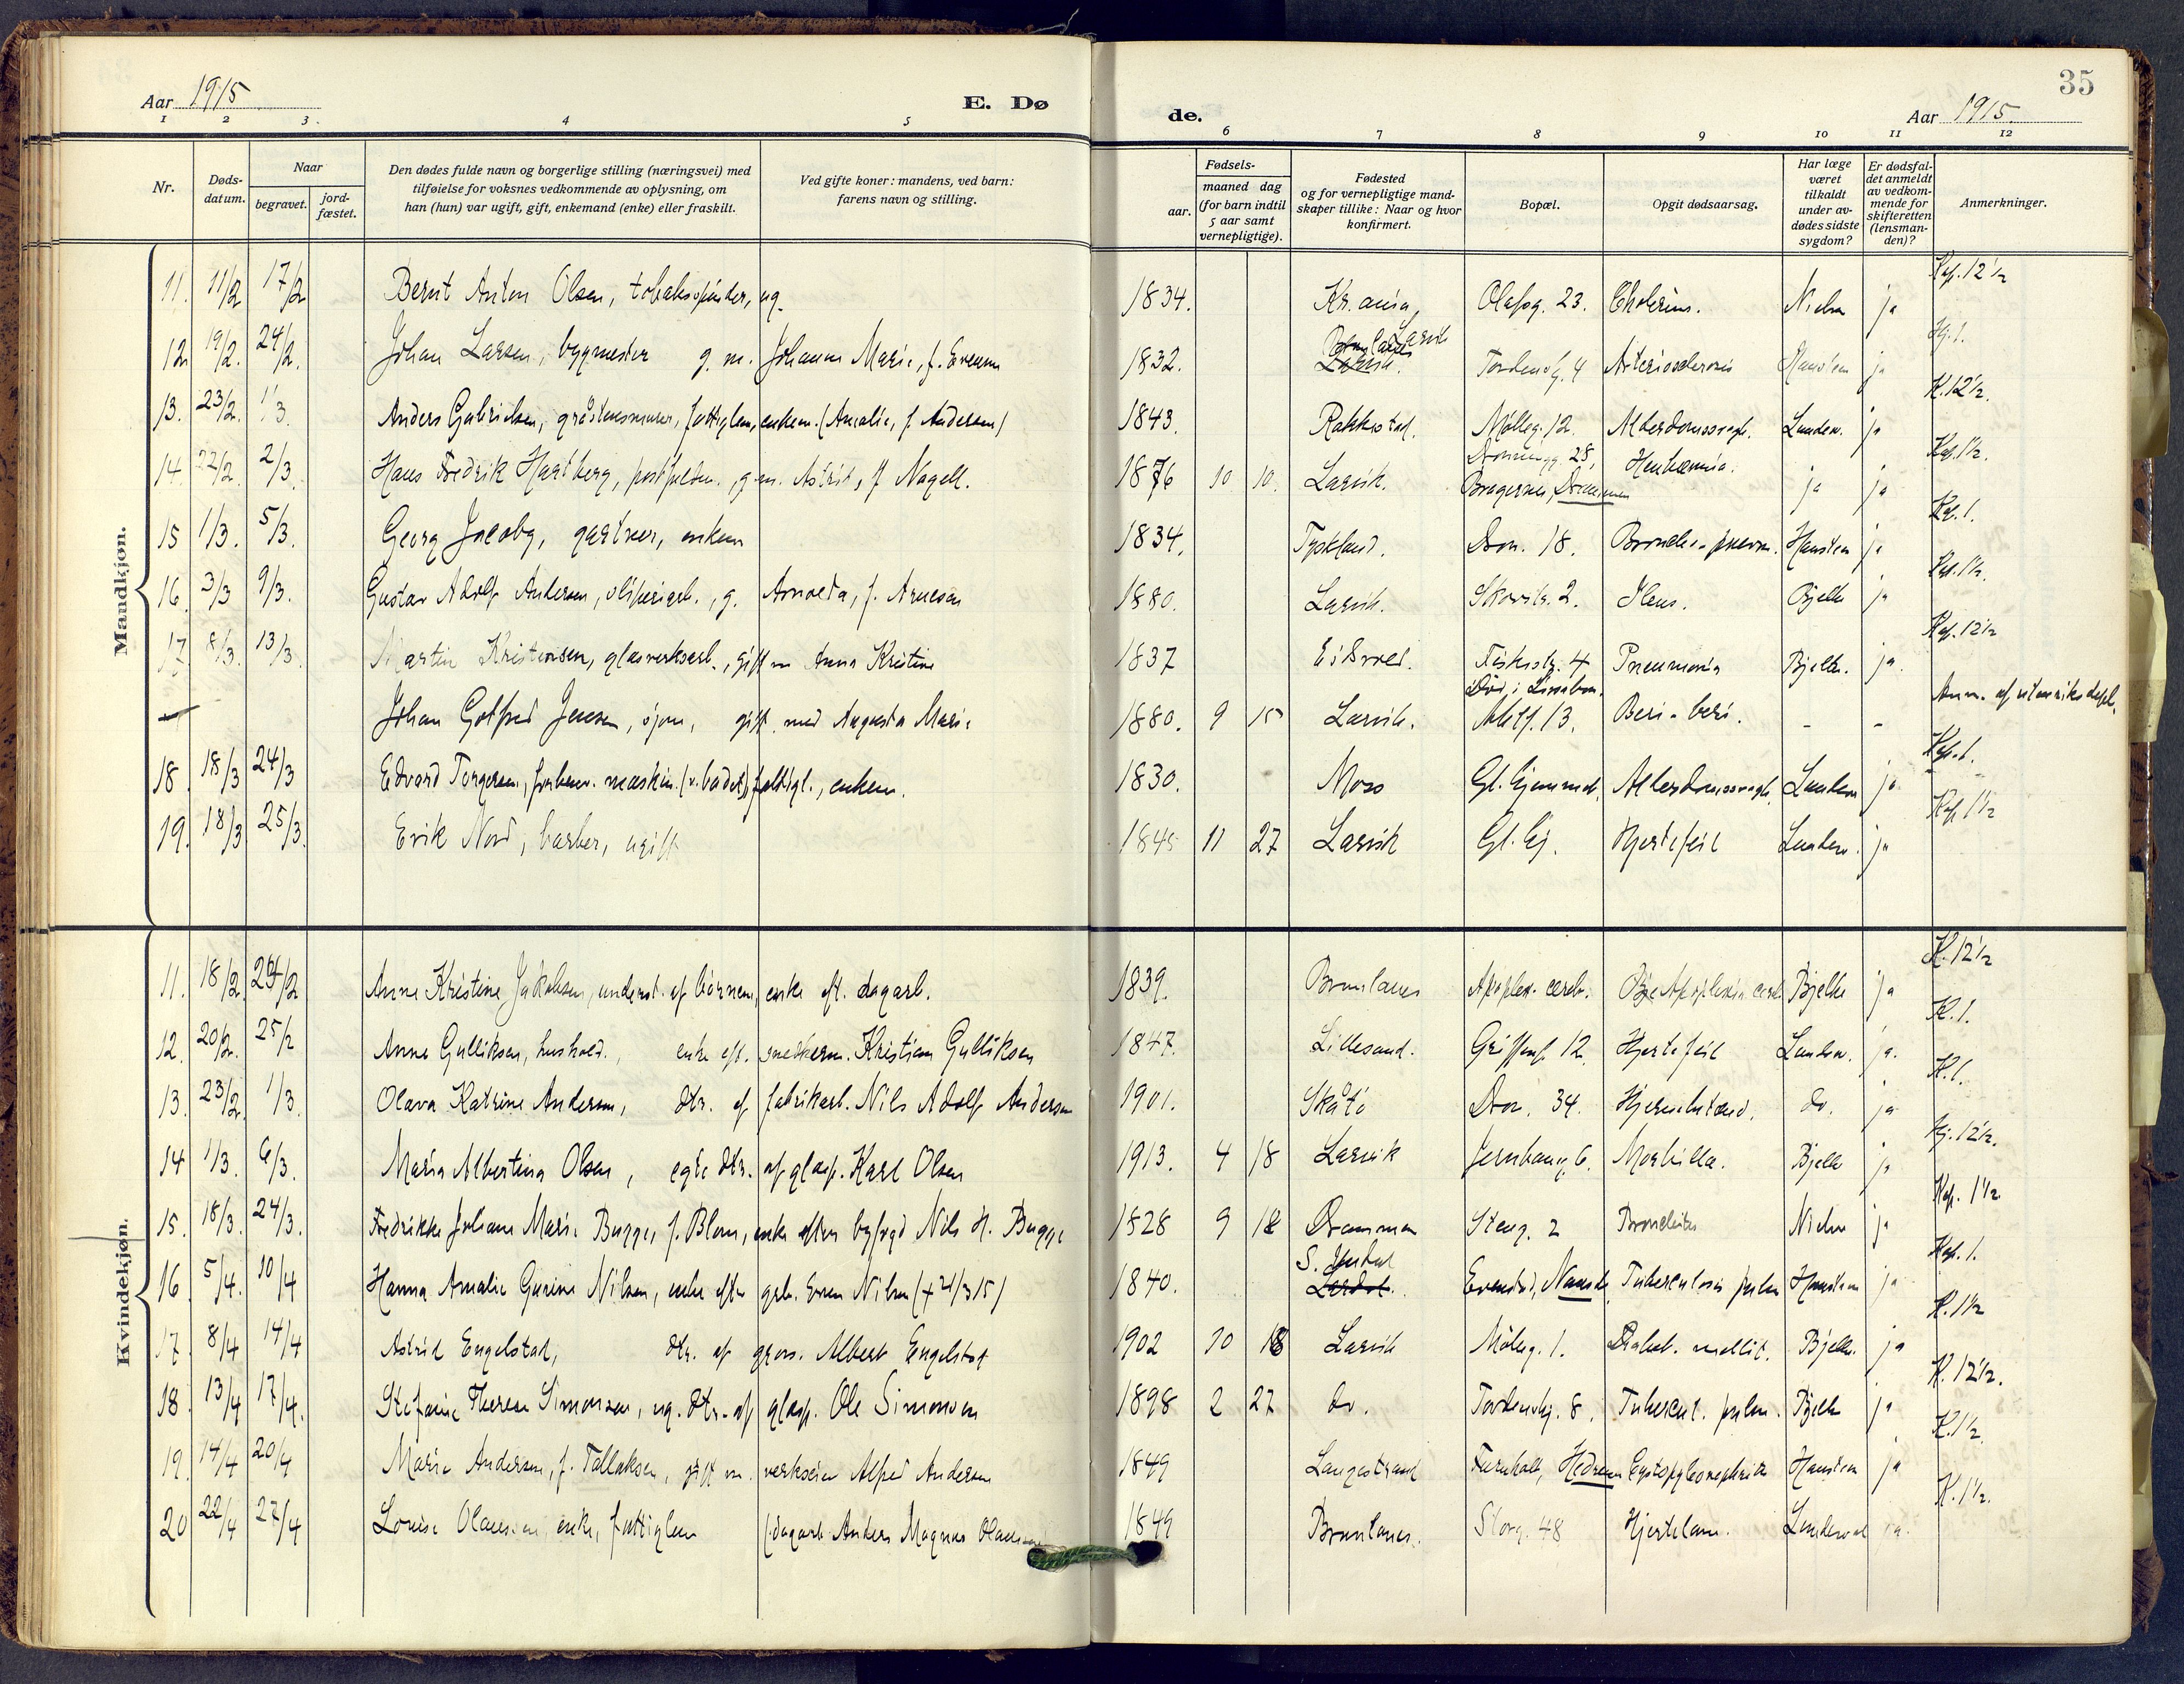 35
Aar 1915 E. Dø de. Aar 1915.
1 2 3. 4 5 6 7 8 9 10 11 12
Nr. Døds-datum. Naar begravet. jord-fæstet. Den dødes fulde navn og borgerlige stilling (næringsvei) med tilføielse for voksnes vedkommende av oplysning, om han (hun) var ugift, gift, enkemand (enke) eller fraskilt. Ved gifte koner: mandens, ved barn: farens navn og stilling. Fødsels- aar. maaned dag (for barn indtil 5 aar samt vernepligtige). Fødested og for vernepligtige mand-skaper tillike: Naar og hvor konfirmert. Bopæl. Opgit dødsaarsag. Har læge været tilkaldt under av-dødes sidste sygdom? Er dødsfal-det anmeldt av vedkom-mende for skifteretten (lensman-den)? Anmerkninger.
Mandkjøn.
11. 11/2 17/2 Bernt Anton Olsen, tobaksspinder, ug. 1834. Kr.ania, Olafsg. 23. Nielsen ja Kap. 12½
12 19/2. 24/2. Johan Larsen, bygmester g. m. Johanne Marie, f. Evensen 1832. Brunlanes Larvik Tordenskj. 4 Arteriosclerosis Hansteen ja Kj. 1.
13. 23/2. 1/3. Anders Gabrielsen, gråstensmurer, fattiglem, enkem. (Amalie, f. Andersen) 1843. Rakkestad. Mølleg. 12. Alderdomssvagh. Lundew. ja K. 12½.
14. 22/2. 2/3. Hans Fredrik Hartberg, postfuldm., g. m. Astrid, f. Nagell. 1876 10 10. Larvik. Dronningg. 28, Bragernes, Drammen ja ja Kap. 1½.
15 1/3. 5/3. Georg Jacoby, gartner, enkem 1834. Tyskland. Dron. 18. Broncho-pneum. Hansteen ja Kap. 1.
16. 3/3 9/3. Gustav Adolf Andersen, sliperiarb., g. Arnolda, f. Arnesen 1880. Larvik. Skovstr. 2. Ileus. Bjelke ja Kap. 1½.
17 8/3. 13/3. Martin Kristensen, glasverksarb., gift m Anna Kristine 1837 Eidsvold. Fiskestr. 4 Pneumonia Bjelke. ja. Kap. 12½
— Johan Gotfred Jensen, sjøm., gift med Augusta Marie 1880. 9 15 Larvik. Død i Lissabon. 13. Beri-beri. - - Anm. af utenriksdept.
18. 18/3 24/3 Edvard Torgersen, forhenv. maskin. (v. badet), fattigl., enkem. 1830. Moss Gl. hjemmet. Alderdomssvagh. Lundew ja Kap. 1.
19. 18/3 25/3. Erik Nord, barber, ugift 1845 11 27 Larvik Gl. Hj. Hjertefeil Lundew. ja Kap 1½
Kvindekjøn.
11. 18/2. 24/2 Anne Kristine Jakobsen, underst. af børnene, enke eft. dagarb. 1839. Brunlanes Apoplex. cereb. Apoplexia cereb Bjelke ja K. 12½
12. 20/2. 25/2 Anne Gulliksen, hushold., enke eft. snedkerm. Kristian Gulliksen 1847. Lillesand. Griffenf. 12. Hjertefeil Lundew. ja. K. 1.
13. 23/2. 1/3. Olava Katrine Andersen, dtr. af fabrikarb. Nils Adolf Andersen 1901. Skåtø Dron. 34. Hjernebetænd. do. ja K. 1.
14 1/3. 6/3. Maria Albertina Olsen, egte dtr. af glasp. Karl Olsen 1913. 4 18 Larvik Jernbaneg. 6. Morbilli. Bjelke ja Kj. 12½.
15. 18/3. 24/3. Fredrikke Johanne Marie Bugge, f. Blom, enke efter byfogd Nils H. Bugge 1828 9 18 Drammen Steng. 2 Bronchitis Nielsen ja Kap. 1½
16 5/4. 10/4 Hanna Amalie Gurine Nilsen, enke efter grb. Even Nilsen (+ 21/3 15) 1840. Lardal. Nanset Tuberculosis pulm Hansteen ja Kap. 1.
17. 8/4 14/4 Astrid Engelstad, dtr. af gros. Albert Engelstad 1902 10 18 Larvik Mølleg. 1. Diabet. mellit. Bjelke. ja K. 1½
18. 13/4 17/4. Stefanie Therese Simonsen, ug. dtr. af glasp. Ole Simonsen 1898 2 27 do. Tordenskj. 8. Tubercul. pulm. Bjelke ja K. 12½.
19. 14/4 20/4 Marie Andersen, f. Tallaksen, gift m. verkseier Alfred Andersen 1849 Langestrand Furuholt, Hedrum Cystopyelonephritis Hansteen ja K. 1½.
20 22/4 27/4 Lovise Olaussen, enke, fattiglem (dagarb. Anders Magnus Olaussen 1849 Brunlanes. Storg. 48 Hjertelam. Lundewal ja. K. 1½.